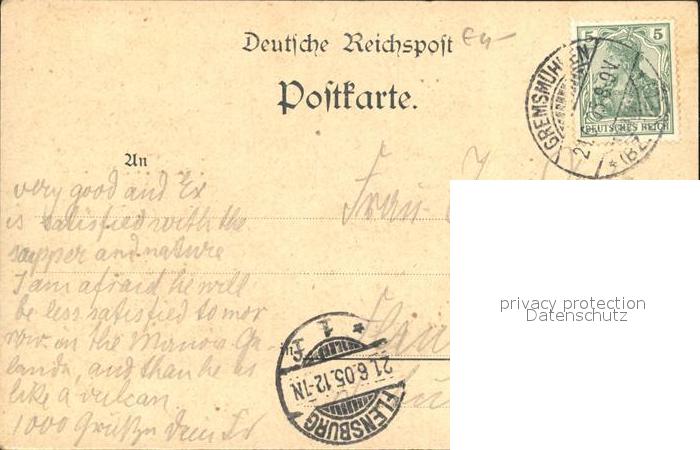 Deutsche Reichspost
Postkarte.
5 5
DEUTSCHES REICH
GREMSMÜHLEN
21. 8-9V.
*(BZ.
An
Frau
very good and Ex
is satisfied with the
supper and nature
I am afraid he will
be less satisfied to mor
row on the
and than he is
like a vulcan
1000 Grüße Dein
in
FLENSBURG
21.6.05.12-7N.
* 1 f
privacy protection
Datenschutz